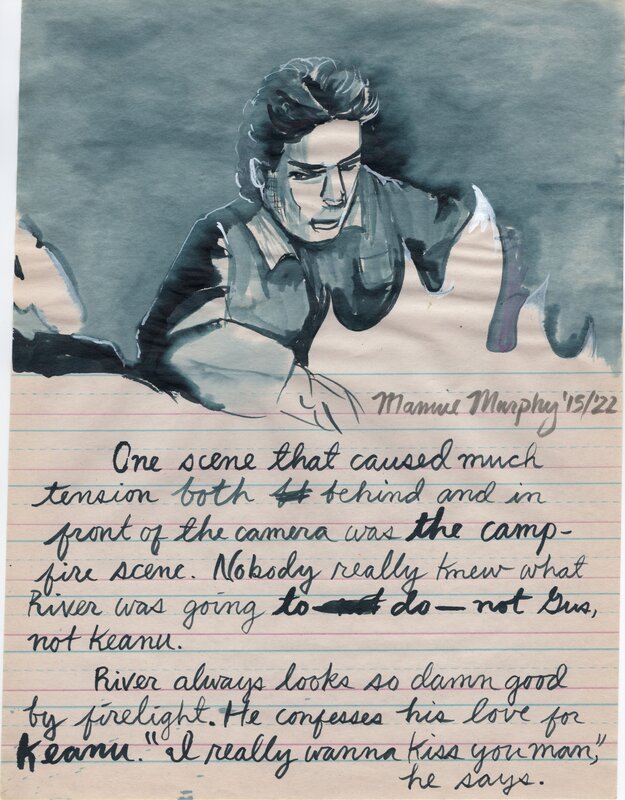 Mannie Murphy '15/'22
One scene that caused much
tension both behind and in
front of the camera was the camp-
fire scene. Nobody really knew what
River was going to do — not Gus,
not Keanu.
River always looks so damn good
by firelight. He confesses his love for
Keanu. "I really wanna kiss you man,"
he says.